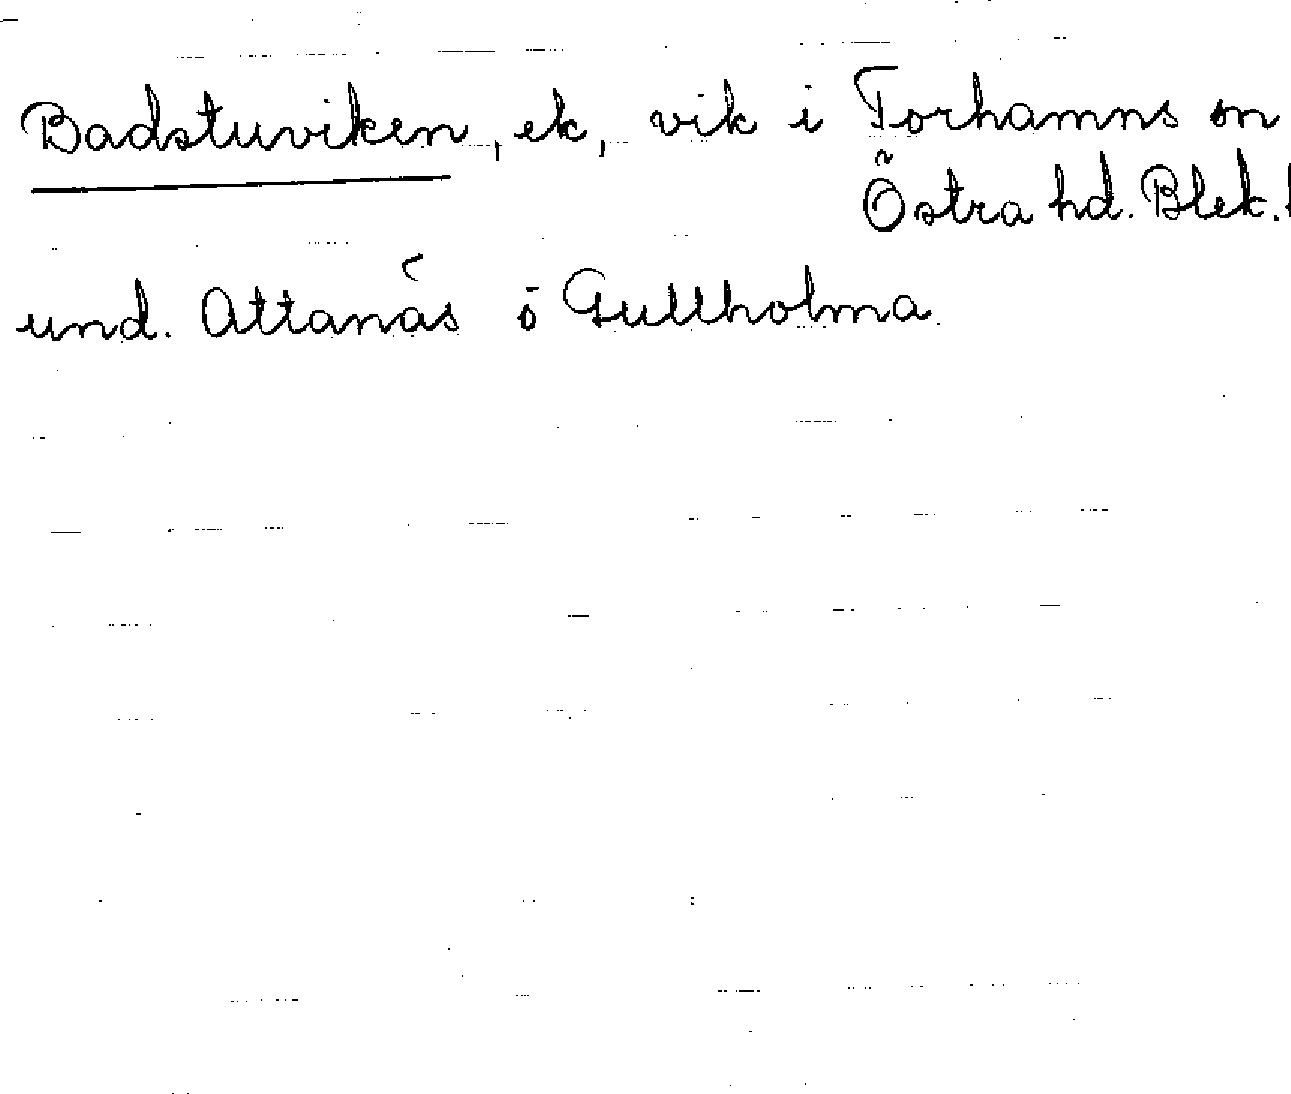 Badstuviken, ek, vik i Torhamns sn
Östra hd. Blek. l
und. Attanäs ö Gullholma.